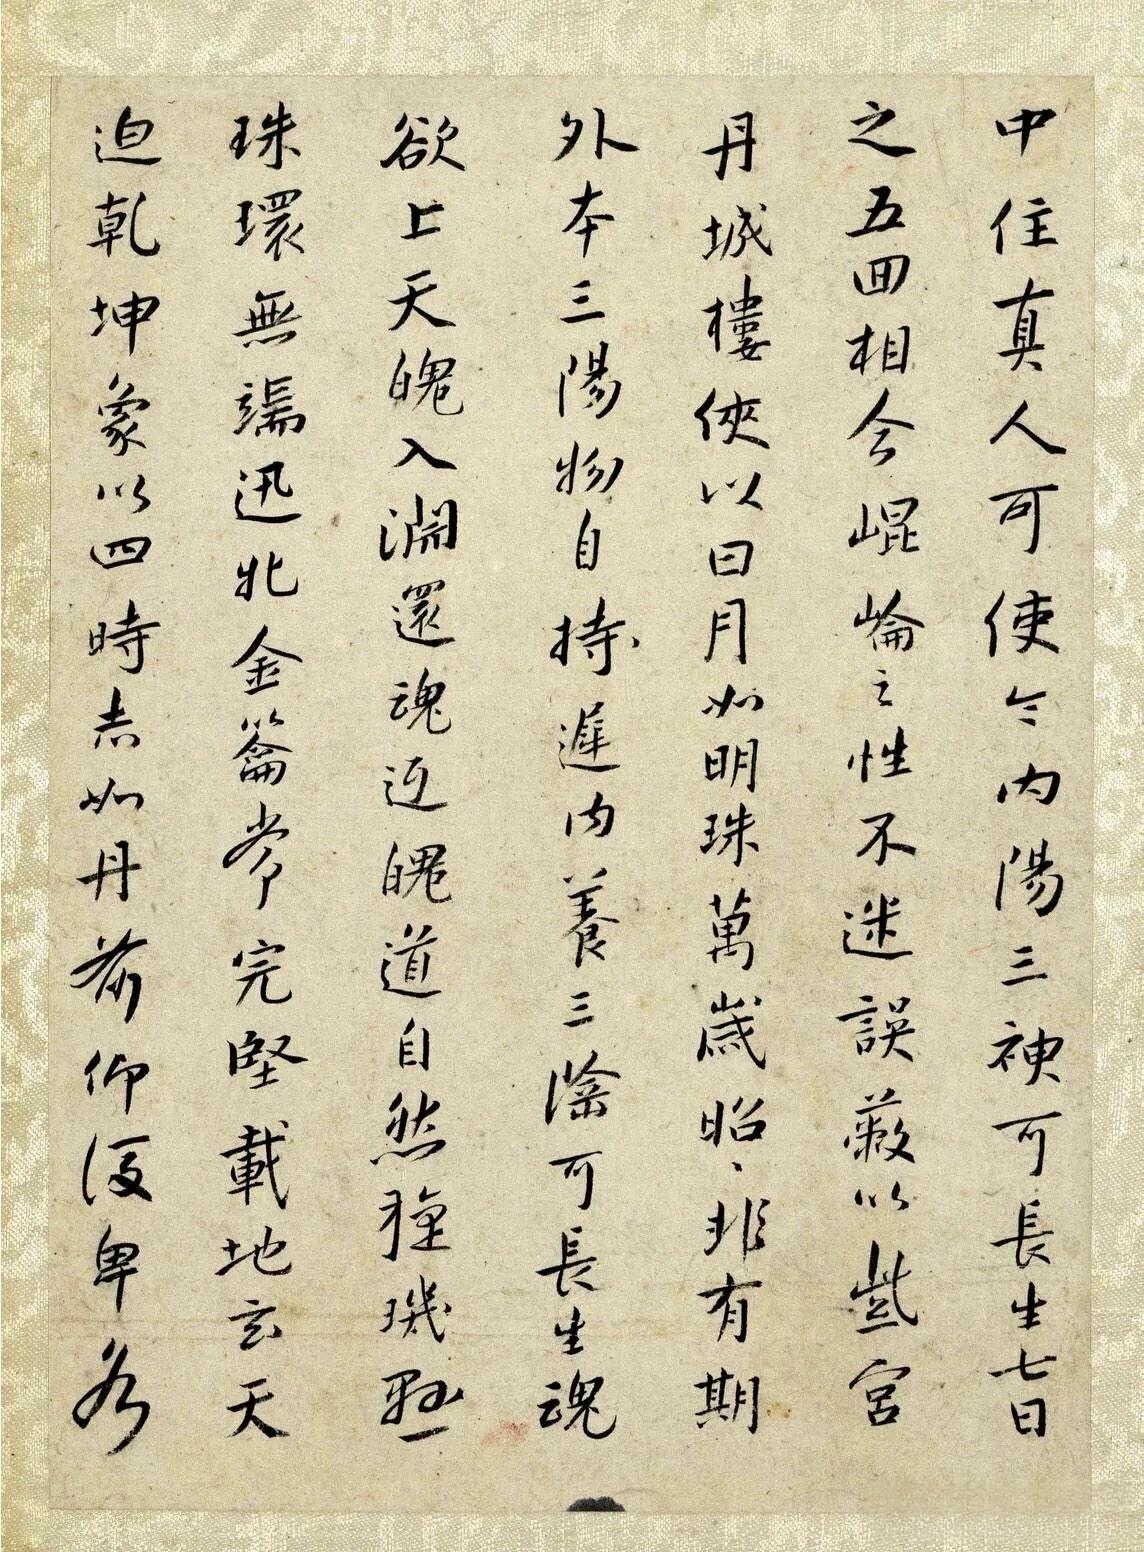 中住真人可使令内陽三神可長生七日
之五回相合崐崘之性不迷誤蔽以紫宮
丹城樓俠以日月如明珠萬歲昭〻非有期
外本三陽物自持遲内養三隂可長生魂
欲上天魄入淵還魂返魄道自然琁璣懸
珠環無端迅牝金籥常完堅載地玄天
迫乾坤象以四時赤如丹前仰後卑各